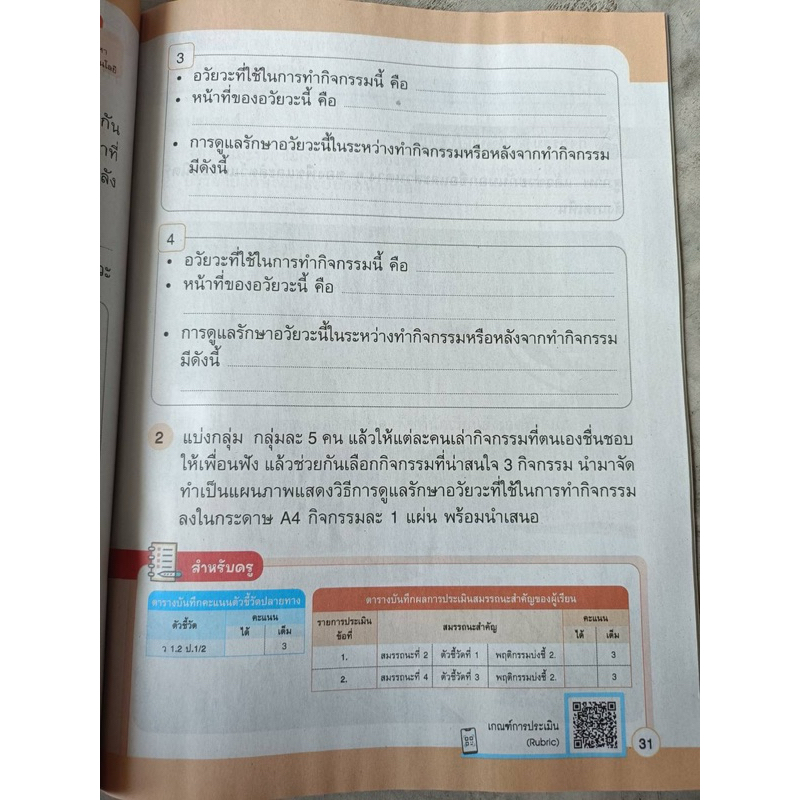 3
• อวัยวะที่ใช้ในการทำกิจกรรมนี้ คือ
• หน้าที่ของอวัยวะนี้ คือ
• การดูแลรักษาอวัยวะนี้ในระหว่างทำกิจกรรมหรือหลังจากทำกิจกรรม
มีดังนี้
4
• อวัยวะที่ใช้ในการทำกิจกรรมนี้ คือ
• หน้าที่ของอวัยวะนี้ คือ
• การดูแลรักษาอวัยวะนี้ในระหว่างทำกิจกรรมหรือหลังจากทำกิจกรรม
มีดังนี้
2 แบ่งกลุ่ม กลุ่มละ 5 คน แล้วให้แต่ละคนเล่ากิจกรรมที่ตนเองชื่นชอบ
ให้เพื่อนฟัง แล้วช่วยกันเลือกกิจกรรมที่น่าสนใจ 3 กิจกรรม นำมาจัด
ทำเป็นแผนภาพแสดงวิธีการดูแลรักษาอวัยวะที่ใช้ในการทำกิจกรรม
ลงในกระดาษ A4 กิจกรรมละ 1 แผ่น พร้อมนำเสนอ
สำหรับครู
ตารางบันทึกคะแนนตัวชี้วัดปลายทาง
ตัวชี้วัด คะแนน
ได้ เต็ม
ว 1.2 ป.1/2 3
ตารางบันทึกผลการประเมินสมรรถนะสำคัญของผู้เรียน
รายการประเมิน สมรรถนะสำคัญ คะแนน
ข้อที่ ได้ เต็ม
1. สมรรถนะที่ 2 ตัวชี้วัดที่ 1 พฤติกรรมบ่งชี้ 2. 3
2. สมรรถนะที่ 4 ตัวชี้วัดที่ 3 พฤติกรรมบ่งชี้ 2. 3
เกณฑ์การประเมิน
(Rubric)
31